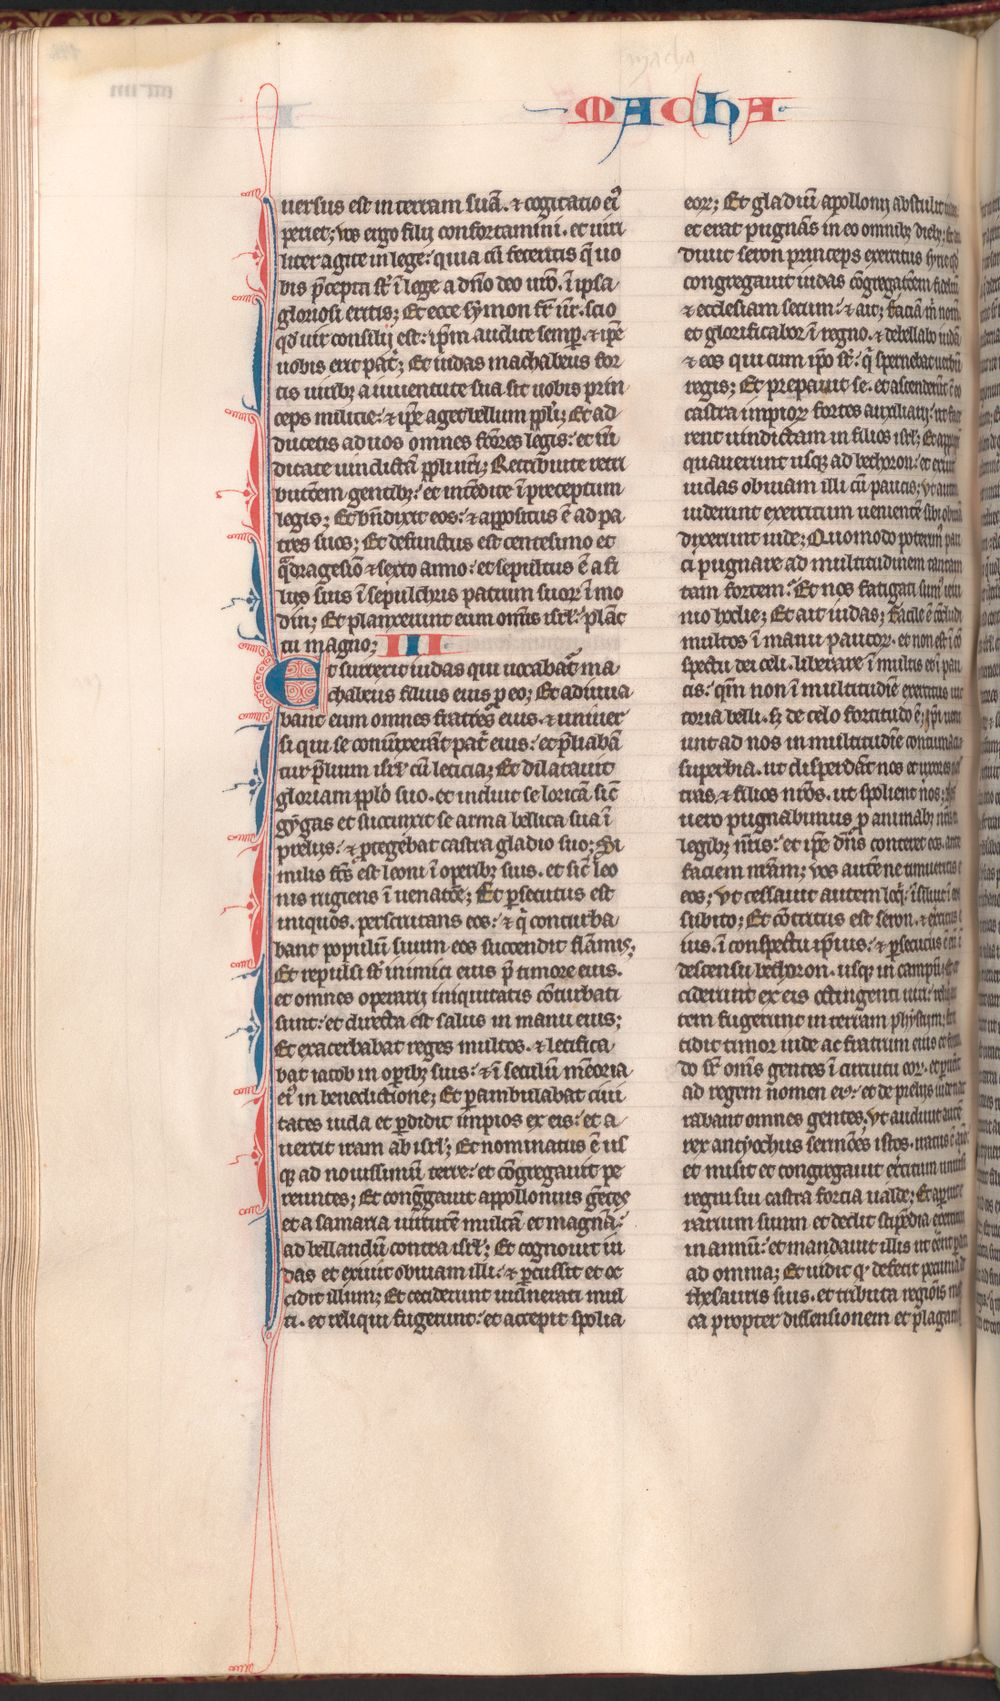 macha
MACHA
uersus est in terram suā. ⁊ cogitatio eiꝰ
periet; vos ergo filij confortamini. et uiri
liter agite in lege: quia cū feceritis q̄ uo
bis p̄cepta st̄ ī lege a dño deo uīo. ī ipsa
gloriosi eritis; Et ecce symon fr̄ ur̄. scio
qđ uir consilij est: ipm̄ audite semp̱. ⁊ ip̄e
uobis erit pat̄; Et iudas machabeus for
tis uiribꝫ a iuuentute sua sit uobis prin
ceps militie: ⁊ ip̄e aget bellum ppl̄i; Et ad
ducetis ad uos omnes fc̄ores legis: et uī
dicate uindictā ppl̄i uīi; Retribuite retri
butōem gentibꝫ: et intēdite ī preceptum
legis; Et bn̄dixit eos: ⁊ appositus ē ad pa
tres suos; Et defunctus est centesimo et
qᵃdragesīo ⁊ sexto anno: et sepultus ē a fi
lijs suis ī sepulchris patrum suoꝝ ī mo
din; Et planxerunt eum om̄is isrl̄: planc̄
tu magno; III
Et surrexit iudas qui uocabat᷑ ma
chabeus filius eius p̱ eo; Et adiuua
bant eum omnes fratres eius. ⁊ uniuer
si qui se coniūxerāt pat̄ eius: et p̄liabā
tur p̄lium isrl̄ cū leticia; Et dilatauit
gloriam pplo suo. et induit se loricā sic̄
gygas et succinxit se arma bellica sua ī
prelijs: ⁊ p̱tegebat castra gladio suo; Si
milis fc̄s est leoni ī operibꝫ suis. et sic̄ leo
nis rugiens ī uenatōe; Et p̱secutus est
iniquos. perscrutans eos: ⁊ q̇ conturba
bant populū suum eos succendit flāmis;
Et repulsi st̄ inimici eius p̄ timore eius.
et omnes operarij iniquitatis cōturbati
sunt: et directa est salus in manu eius;
Et exacerbabat reges multos. ⁊ letifica
bat iacob in op̱ibꝫ suis: ⁊ ī seculū mēoria
eiꝰ in benedictione; Et p̱ambulabat ciui
tates iuda et p̱didit impios ex eis: et a
uertit iram ab isrl̄; Et nominatus ē us
qꝫ ad nouissimū terre: et cōgregauit pe
reuntes; Et congͥgauit appollonius gētes
et a samaria uirtutē multā et magnā:
ad bellandū contra isrl̄; Et cognouit iu
das et exiuit obuiam illi: ⁊ p̱cussit et oc
cidit illum; Et ceciderunt uulnerati mul
ti. et reliqui fugerunt: et accepit spolia
eoꝝ; Et gladiū apollonij abstulit
et erat pugnās in eo omnibꝫ diebꝫ;
diuit seron princeps exercitus syrie qđ
congregauit iudas cōgregatōem fidelīu
⁊ ecclesiam secum: ⁊ ait; faciā m̄ nom̄.
et glorificabor ī regno. ⁊ debellabo iudā
⁊ eos qui cum ip̄o st̄: q̇ spernebat uerbū
regis; Et prepauit se. et ascenderūt
castra impioꝝ fortes auxiliarij: ut
rent uindictam in filios isrl̄; Et
quauerunt usqꝫ ad bethoron: et exiuit
iudas obuiam illi cū paucis; vt autem
uiderunt exercitum uenientē sibi obuiā
dixerunt iude; Quomodo poterimꝰ pau
ci pugnare ad multitudinem tantam
tam fortem: Et nos fatigati sumꝰ ieiu
nio hodie; Et ait iudas; facile ē cōcludi
multos ī manu paucoꝝ. et non est
spectu dei celi. liberare ī multis et ī pau
cis: qm̄ non ī multitudīe exercitus uic
toria belli. sꝫ de celo fortitudo ē; ip̄i ueni
unt ad nos in multitudīe contumaci
superbia. ut disperdāt nos et uxores
tras. ⁊ filios nr̄os. ut spolient nos;
uero pugnabimus p̱ animabꝫ
legibꝫ nr̄is: et ip̄e dn̄s conteret eos. ante
faciem nr̄am; vos autē ne timueritis
eos; vt cessauit autem loq̇: ī siluit ī eos
subito; Et cōtritus est seron. ⁊ exercitꝰ
ius. ī conspectu ip̄ius: ⁊ p̱secutus ē
descensu bethoron. usqꝫ in campū:
ciderunt ex eis octingenti uiri:
tem fugerunt in terram phystim;
cidit timor iude ac fratrum eius
do st̄ om̄is gentes ī circuitu eoꝝ. et
ad regem nomen eiꝰ: et de prelijs iude
rabant omnes gentes. vt audiuit autē
rex antyochus sermōes istos. iratus ē
et misit et congregauit ex̄citum
regni sui castra fortia ualde; Et aperuit
rarium suum et dedit stipēdia
in annū: et mandauit illis ut
ad omnia; Et uidit qꝫ defecit pecunia
thesauris suis. et tributa regiōis
ca propter dissensionem et plagam